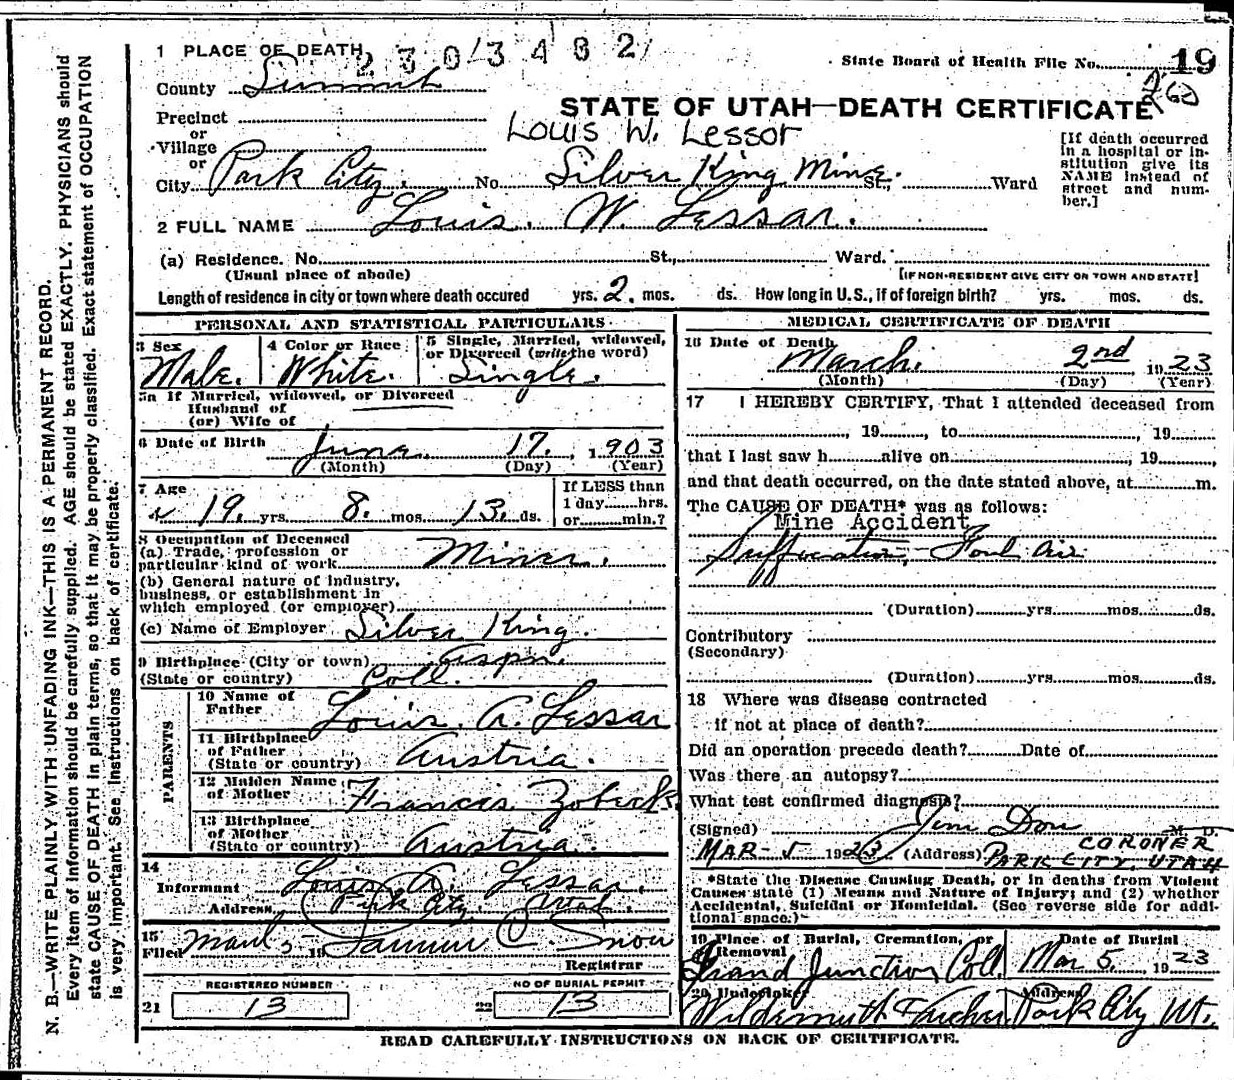 N. B.—WRITE PLAINLY WITH UNFADING INK—THIS IS A PERMANENT RECORD.
Every item of information should be carefully supplied. AGE should be stated EXACTLY. PHYSICIANS should
state CAUSE OF DEATH in plain terms, so that it may be properly classified. Exact statement of OCCUPATION
is very important. See instructions on back of certificate.
1 PLACE OF DEATH
2303402
State Board of Health File No. 19
260
County Summit
STATE OF UTAH—DEATH CERTIFICATE
Precinct
or
Louis W. Lessor
Village
or
City Park City. No. Silver King Mine. St., Ward
[If death occurred
in a hospital or in-
stitution give its
NAME instead of
street and num-
ber.]
2 FULL NAME Louis. W. Lessar.
(a) Residence. No. St., Ward.
(Usual place of abode) [IF NON-RESIDENT GIVE CITY OR TOWN AND STATE]
Length of residence in city or town where death occured yrs. 2. mos. ds. How long in U.S., if of foreign birth? yrs. mos. ds.
PERSONAL AND STATISTICAL PARTICULARS
3 Sex
Male.
4 Color or Race
White.
5 Single, Married, widowed,
or Divorced (write the word)
Single.
5a If Married, widowed, or Divorced
Husband of
(or) Wife of
6 Date of Birth June. 17. 1903
(Month) (Day) (Year)
7 Age
19. yrs. 8. mos. 13. ds.
If LESS than
1 day hrs.
or min.?
8 Occupation of Deceased
(a) Trade, profession or
particular kind of work Miner.
(b) General nature of industry,
business, or establishment in
which employed (or employer)
(c) Name of Employer Silver King.
9 Birthplace (City or town) Aspn.
(State or country) Coll.
PARENTS
10 Name of
Father Louis. A. Lessar
11 Birthplace
of Father
(State or country) Austria.
12 Maiden Name
of Mother Francis
13 Birthplace
of Mother
(State or country) Austria.
14
Informant Louis A. Lessar.
Address Park City. Utah.
15
Filed 19 C. Snow
Registrar
REGISTERED NUMBER
21 13
NO OF BURIAL PERMIT
22 13
MEDICAL CERTIFICATE OF DEATH
16 Date of Death
March. 2nd 1923
(Month) (Day) (Year)
17 I HEREBY CERTIFY, That I attended deceased from
, 19 , to , 19
that I last saw h alive on , 19 ,
and that death occurred, on the date stated above, at m.
The CAUSE OF DEATH* was as follows:
Mine Accident
Suffocation, Foul Air
(Duration) yrs. mos. ds.
Contributory
(Secondary)
(Duration) yrs. mos. ds.
18 Where was disease contracted
if not at place of death?
Did an operation precede death? Date of
Was there an autopsy?
What test confirmed diagnosis?
(Signed) Jim Don M. D.
CORONER
MAR-5 1923 (Address) PARK CITY, UTAH
*State the Disease Causing Death, or in deaths from Violent
Causes state (1) Means and Nature of Injury; and (2) whether
Accidental, Suicidal or Homicidal. (See reverse side for addi-
tional space.)
19 Place of Burial, Cremation, or
Removal
Grand Junction Coll.
Date of Burial
Mar 5. 1923
20 Undertaker
Address
Park City Ut.
READ CAREFULLY INSTRUCTIONS ON BACK OF CERTIFICATE.